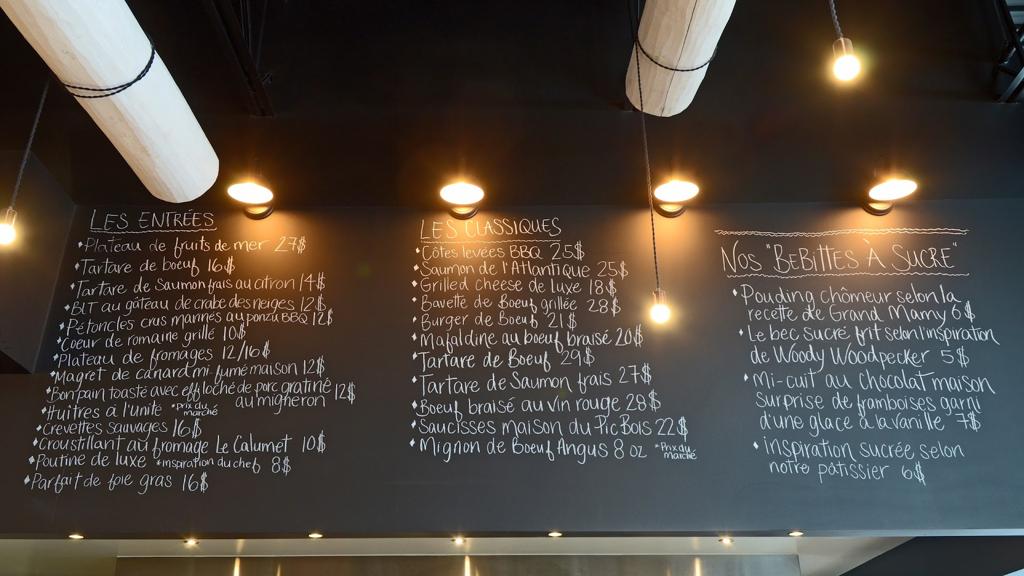 LES ENTRÉES
Plateau de fruits de mer 27$
Tartare de boeuf 16$
Tartare de Saumon frais au citron 14$
BLT au gâteau de crabe des neiges 12$
Pétoncles crus marinés au ponzu BBQ 12$
Coeur de romaine grillé 10$
Plateau de fromages 12/16$
Magret de canard mi fumé maison 12$
Bon pain toasté avec effiloché de porc gratiné
au migneron 12$
Huîtres à l'unité *Prix du
marché
Crevettes sauvages 16$
Croustillant au fromage Le Calumet 10$
Poutine de luxe *inspiration du chef 8$
Parfait de foie gras 16$
LES CLASSIQUES
Côtes levées BBQ 25$
Saumon de l'Atlantique 25$
Grilled cheese de luxe 18$
Bavette de Boeuf grillée 28$
Burger de Boeuf 21$
Mafaldine au boeuf braisé 20$
Tartare de Boeuf 29$
Tartare de Saumon frais 27$
Boeuf braisé au vin rouge 28$
Saucisses maison du Pic Bois 22$
Mignon de Boeuf Angus 8 oz *Prix du
marché
NOS "BEBITTES À SUCRE"
Pouding chômeur selon la
recette de Grand Mamy 6$
Le bec sucré frit selon l'inspiration
de Woody Woodpecker 5$
Mi-cuit au chocolat maison
surprise de framboises garni
d'une glace à la vanille 7$
inspiration sucrée selon
notre pâtissier 6$